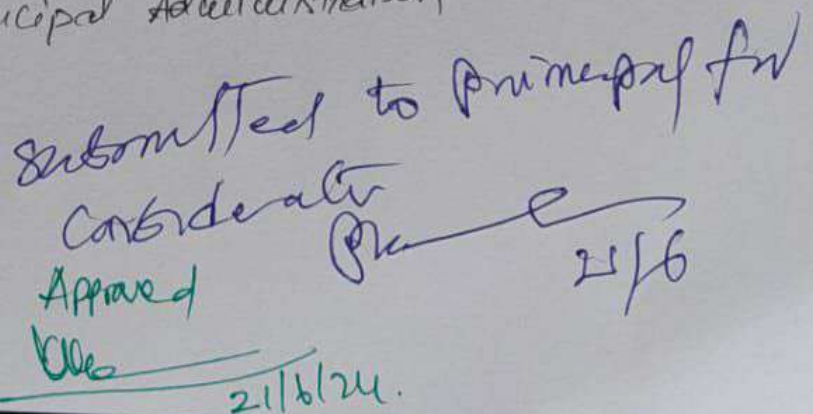 submitted to Principal for
Consideratn
21/6
Approved
21/6/24.